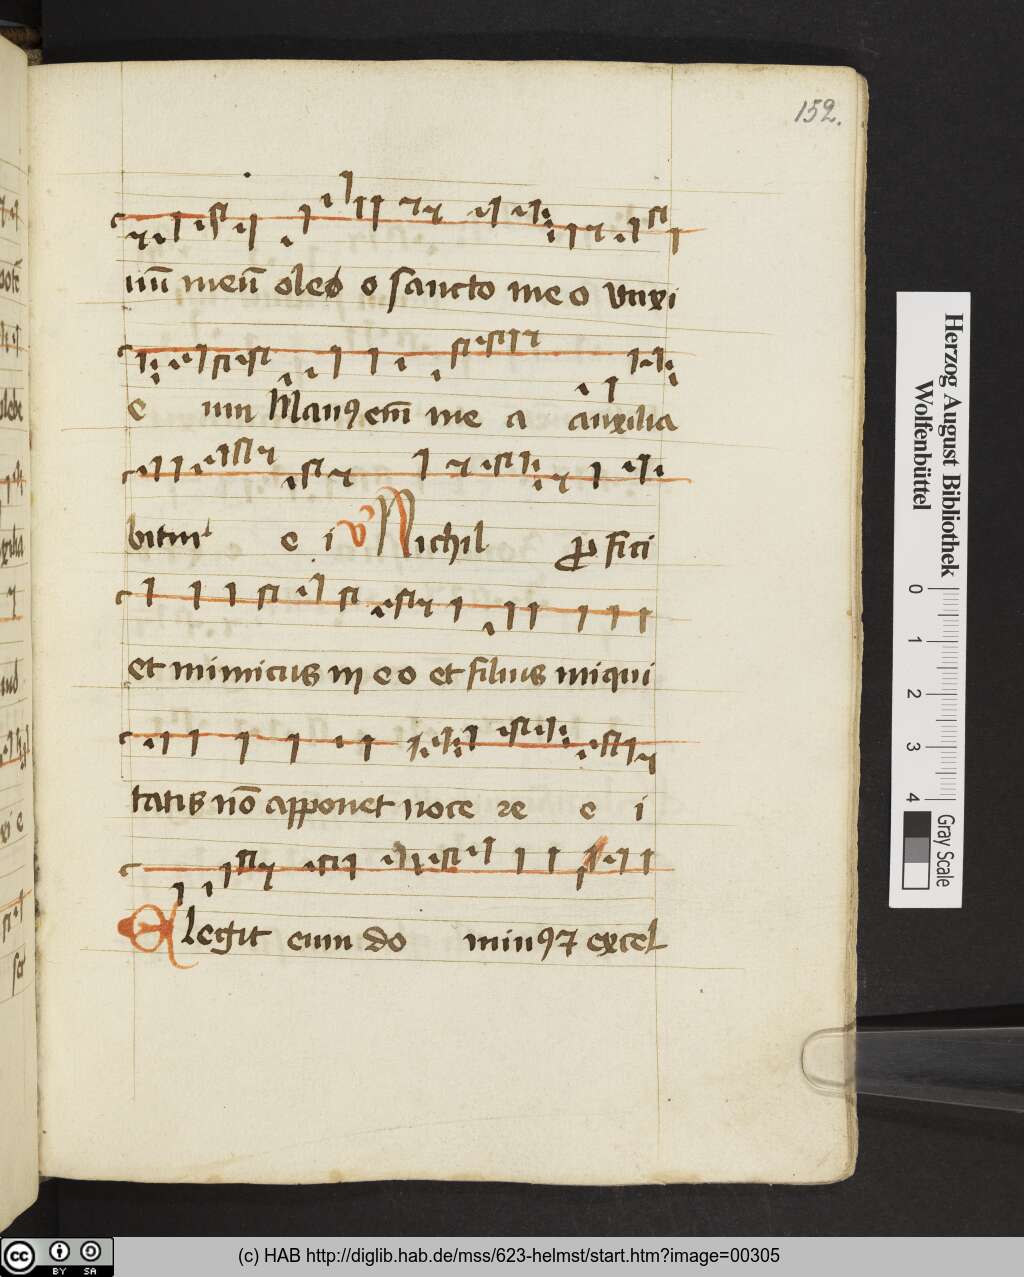 152.
uū meū oleo o sancto meo unxi
e um Manꝯ em̄ me a auxilia
bitur e i v Nichil ꝓfici
et inimicus in eo et filius iniqui
tatis nō apponet noce re e i
Elegit eum do minꝯ ⁊ excel
Herzog August Bibliothek
Wolfenbüttel
0 1 2 3 4
Gray Scale
cc BY SA
(c) HAB http://diglib.hab.de/mss/623-helmst/start.htm?image=00305